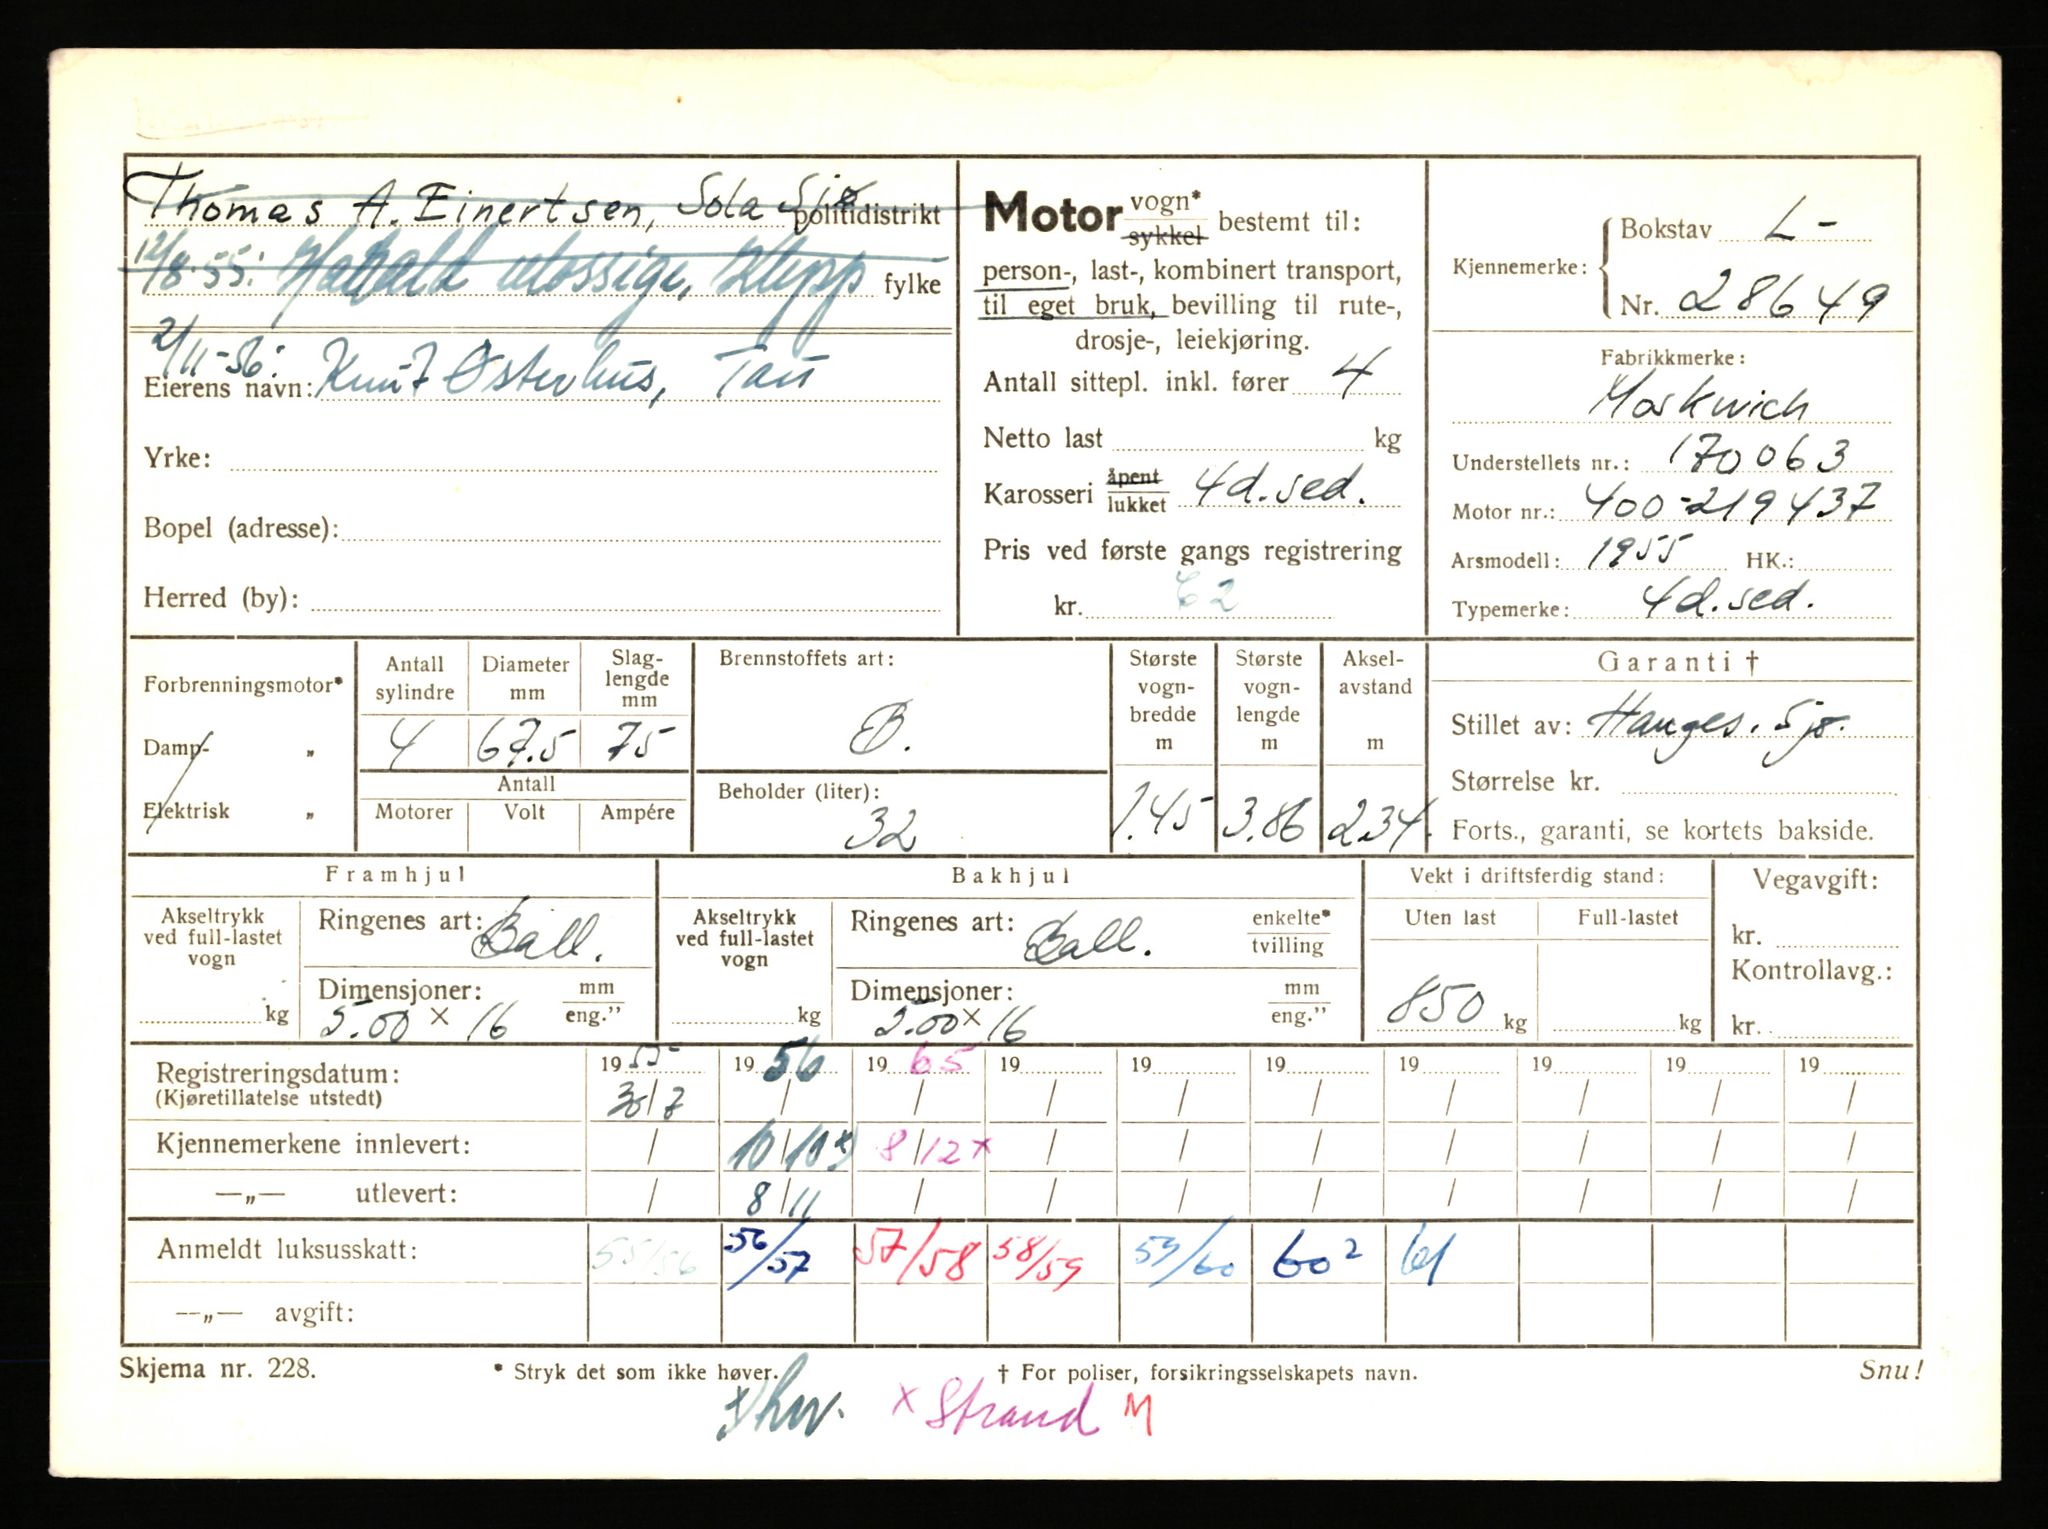 Thomas A. Einertsen, Sola Sjø politidistrikt
12/8-55: Harald fylke
2/11-56:
Eierens navn: Knut Østerhus, Tau
Yrke:
Bopel (adresse):
Herred (by):
Motor vogn* sykkel bestemt til:
person-, last-, kombinert transport,
til eget bruk, bevilling til rute-,
drosje-, leiekjøring.
Antall sittepl. inkl. fører 4
Netto last kg
Karosseri åpent lukket 4d. sed.
Pris ved første gangs registrering
kr.
Kjennemerke: Bokstav L-
Nr. 28649
Fabrikkmerke:
Moskwich
Understellets nr.: 170063
Motor nr.: 400-219437
Arsmodell: 1955 HK.:
Typemerke: 4d. sed.
Forbrenningsmotor*
Damp- "
Elektrisk "
Antall sylindre 4
Diameter mm 67.5
Slag-lengde mm 75
Antall
Motorer Volt Ampére
Brennstoffets art:
B.
Beholder (liter):
32
Største vogn-bredde m 1.45
Største vogn-lengde m 3.86
Aksel-avstand m 2.34
Garanti †
Stillet av: Hauges. Sjø.
Størrelse kr.
Forts., garanti, se kortets bakside.
Framhjul
Akseltrykk ved full-lastet vogn kg
Ringenes art: Ball.
Dimensjoner: mm eng."
5.00 x 16
Bakhjul
Akseltrykk ved full-lastet vogn kg
Ringenes art: Ball. enkelte* tvilling
Dimensjoner: mm eng."
5.00 x 16
Vekt i driftsferdig stand:
Uten last Full-lastet
850 kg kg
Vegavgift:
kr.
Kontrollavg.:
kr.
Registreringsdatum: 1955 1956 1965 19 19 19 19 19 19 19
(Kjøretillatelse utstedt) 30/7 / / / / / / / / /
Kjennemerkene innlevert: / 10/10 x) 8/12 x / / / / / / /
—„— utlevert: / 8/11 / / / / / / / /
Anmeldt luksusskatt: 55/56 56/57 57/58 58/59 59/60 60² 61
—„— avgift:
Skjema nr. 228. * Stryk det som ikke høver. † For poliser, forsikringsselskapets navn. Snu!
x Strand M